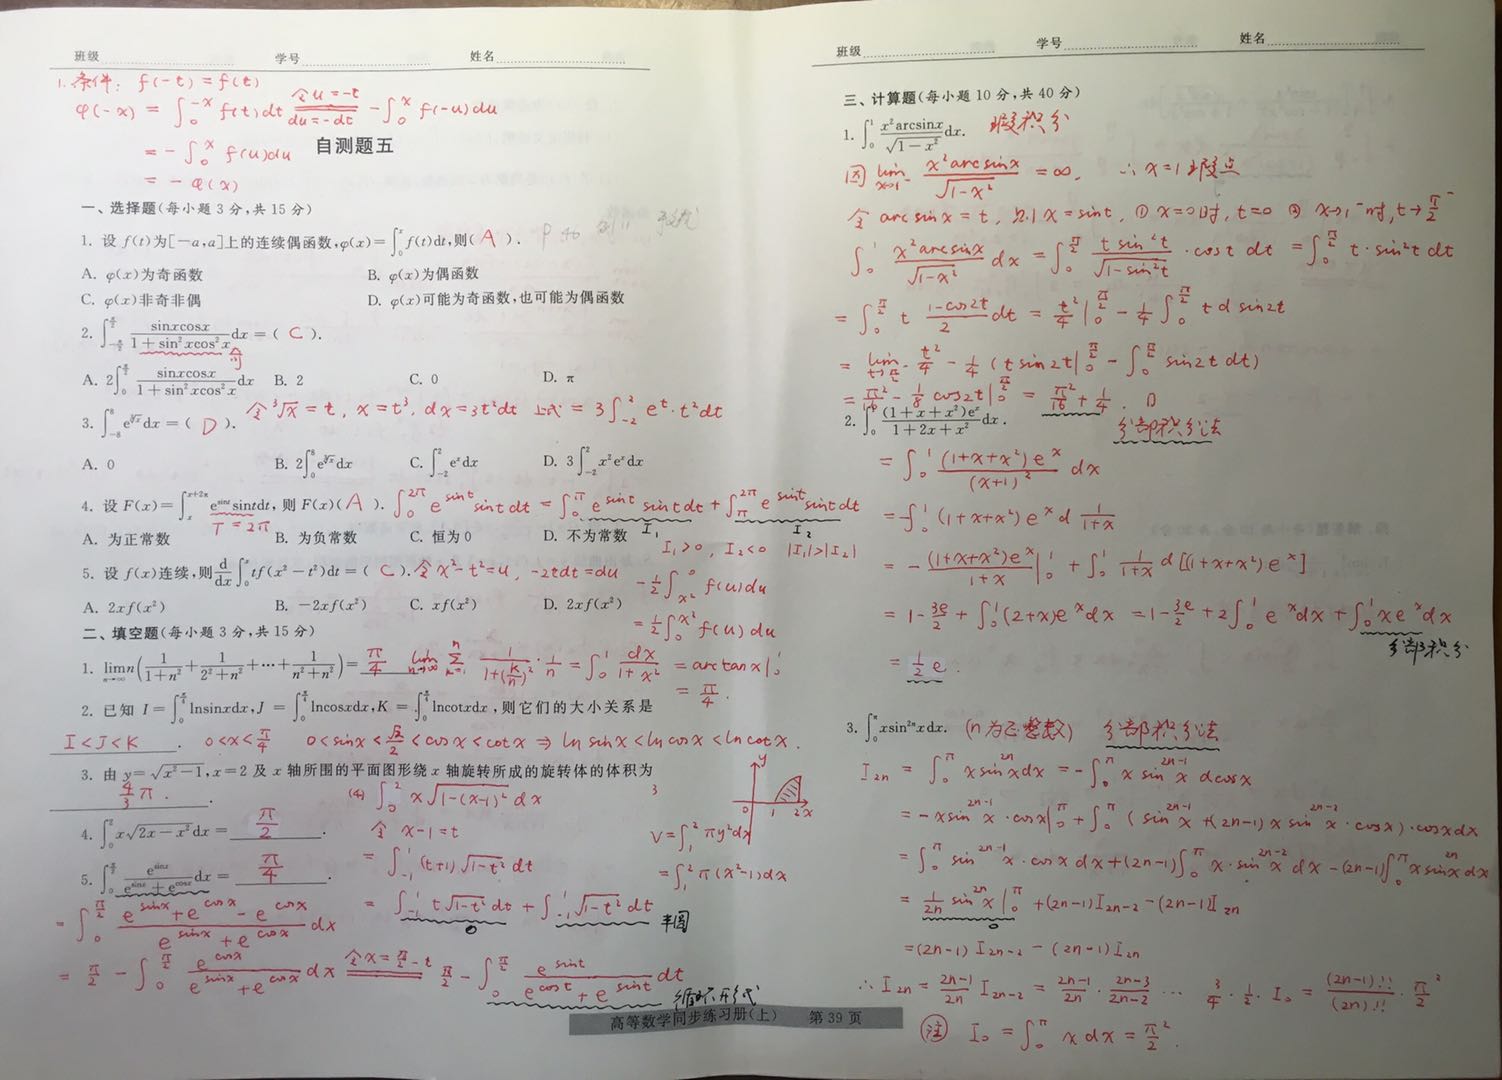 班级 学号 姓名
1. 条件: f(-t) = f(t)
φ(-x) = ∫₀^{-x} f(t)dt 令u=-t du=-dt -∫₀^x f(-u)du
= -∫₀^x f(u)du
= -φ(x)
自测题五
一、选择题(每小题 3 分,共 15 分)
1. 设 f(t)为[-a,a]上的连续偶函数,φ(x)=∫₀^x f(t)dt,则( A ).
A. φ(x)为奇函数 B. φ(x)为偶函数
C. φ(x)非奇非偶 D. φ(x)可能为奇函数,也可能为偶函数
2. ∫_{-π/2}^{π/2} sinxcosx/(1+sin²xcos²x)dx=( C ).
奇
A. 2∫₀^{π/2} sinxcosx/(1+sin²xcos²x)dx B. 2 C. 0 D. π
令 ³√x = t, x = t³, dx = 3t²dt 上式 = 3∫_{-2}^{2} e^t·t²dt
3. ∫_{-8}^{8} e^{³√x}dx=( D ).
A. 0 B. 2∫₀^8 e^{³√x}dx C. ∫_{-2}^{2} e^x dx D. 3∫_{-2}^{2} x²e^x dx
4. 设 F(x)=∫_x^{x+2π} e^{sint}sintdt,则 F(x)( A ). ∫₀^{2π} e^{sint} sint dt = ∫₀^π e^{sint} sint dt + ∫_π^{2π} e^{sint} sint dt
T = 2π I₁ I₂
A. 为正常数 B. 为负常数 C. 恒为 0 D. 不为常数
I₁>0, I₂<0 |I₁|>|I₂|
5. 设 f(x)连续,则 d/dx ∫₀^x tf(x²-t²)dt=( C ). 令 x²-t²=u, -2tdt=du -½∫_{x²}^0 f(u)du
A. 2xf(x²) B. -2xf(x²) C. xf(x²) D. 2xf(x²)
= ½∫₀^{x²} f(u)du
二、填空题(每小题 3 分,共 15 分)
1. lim_{n→∞} n(1/(1+n²)+1/(2²+n²)+⋯+1/(n²+n²))= π/4 lim_{n→∞} Σ_{k=1}^n 1/(1+(k/n)²)·1/n = ∫₀^1 dx/(1+x²) = arctanx|₀^1
= π/4.
2. 已知 I=∫₀^{π/4} lnsinxdx,J=∫₀^{π/4} lncosxdx,K=∫₀^{π/4} lncotxdx,则它们的大小关系是
I<J<K . 0<x<π/4 0<sinx<√2/2<cosx<cotx ⇒ ln sinx<ln cosx<ln cotx.
3. 由 y=√(x²-1),x=2 及 x 轴所围的平面图形绕 x 轴旋转所成的旋转体的体积为
4/3 π .
3 y 0 1 2 x
V=∫₁² πy²dx
=∫₁² π(x²-1)dx
4. ∫₀² x√(2x-x²)dx= π/2 .
(4) ∫₀² x√(1-(x-1)²) dx
令 x-1=t
= ∫_{-1}^1 (t+1)√(1-t²) dt
= ∫_{-1}^1 t√(1-t²) dt + ∫_{-1}^1 √(1-t²) dt 半圆
0
5. ∫₀^{π/2} e^{sinx}/(e^{sinx}+e^{cosx})dx= π/4 .
= ∫₀^{π/2} (e^{sinx}+e^{cosx}-e^{cosx})/(e^{sinx}+e^{cosx}) dx
= π/2 - ∫₀^{π/2} e^{cosx}/(e^{sinx}+e^{cosx}) dx 令x=π/2-t π/2 - ∫₀^{π/2} e^{sint}/(e^{cost}+e^{sint}) dt
循环形式
高等数学同步练习册(上) 第 39 页
班级 学号 姓名
三、计算题(每小题 10 分,共 40 分)
1. ∫₀^1 x²arcsinx/√(1-x²) dx. 瑕积分
因 lim_{x→1⁻} x²arcsinx/√(1-x²) = ∞, ∴ x=1 瑕点
令 arcsinx = t, 则 x = sint, ① x=0时, t=0 ② x→1⁻时, t→π/2⁻
∫₀^1 x²arcsinx/√(1-x²) dx = ∫₀^{π/2} t sin²t/√(1-sin²t) · cost dt = ∫₀^{π/2} t·sin²t dt
= ∫₀^{π/2} t (1-cos2t)/2 dt = t²/4|₀^{π/2} - ¼∫₀^{π/2} t d sin2t
= lim_{t→π/2⁻} t²/4 - ¼ (t sin2t|₀^{π/2} - ∫₀^{π/2} sin2t dt)
= π²/16 - ⅛ cos2t|₀^{π/2} = π²/16 + ¼ .
2. ∫₀^1 (1+x+x²)e^x/(1+2x+x²) dx. 分部积分法
= ∫₀^1 (1+x+x²)e^x/(x+1)² dx
= -∫₀^1 (1+x+x²)e^x d 1/(1+x)
= -(1+x+x²)e^x/(1+x)|₀^1 + ∫₀^1 1/(1+x) d[(1+x+x²)e^x]
= 1-3e/2 + ∫₀^1 (2+x)e^x dx = 1-3e/2 + 2∫₀^1 e^x dx + ∫₀^1 xe^x dx
分部积分
= ½ e.
3. ∫₀^π xsin²ⁿxdx. (n为正整数) 分部积分法
I₂ₙ = ∫₀^π x sin²ⁿx dx = -∫₀^π x sin²ⁿ⁻¹x dcosx
= -x sin²ⁿ⁻¹x·cosx|₀^π + ∫₀^π (sin²ⁿ⁻¹x + (2n-1)x sin²ⁿ⁻²x·cosx)·cosx dx
= ∫₀^π sin²ⁿ⁻¹x·cosx dx + (2n-1)∫₀^π x·sin²ⁿ⁻²x dx - (2n-1)∫₀^π x sin²ⁿx dx
= 1/2n sin²ⁿx|₀^π + (2n-1)I₂ₙ₋₂ - (2n-1)I₂ₙ
0
= (2n-1) I₂ₙ₋₂ - (2n-1) I₂ₙ
∴ I₂ₙ = (2n-1)/2n I₂ₙ₋₂ = (2n-1)/2n · (2n-3)/(2n-2) ⋯ 3/4 · 1/2 · I₀ = (2n-1)!!/(2n)!! · π²/2
注 I₀ = ∫₀^π x dx = π²/2.